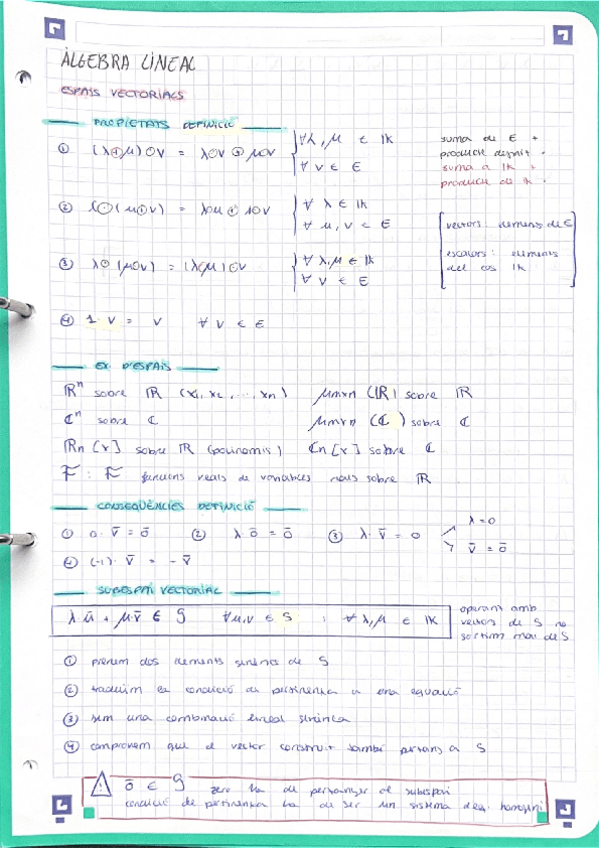 ÀLGEBRA LINEAL
ESPAIS VECTORIALS
PROPIETATS DEFINICIÓ
① (λ⊕μ)⊙v = λ⊙v ⊕ μ⊙v ∀λ,μ ∈ IK
∀ v ∈ E
suma de E +
producte
suma a IK +
producte de IK ·
② λ⊙(μ⊕v) = λ⊙u ⊕ λ⊙v ∀ λ ∈ IK
∀ u, v ∈ E
vectors: elements de E
escalars: elements
del cos IK
③ λ⊙(μ⊙v) = (λ·μ)⊙v ∀ λ,μ ∈ IK
∀ v ∈ E
④ 1·v = v ∀ v ∈ E
EX. D'ESPAIS
ℝⁿ sobre ℝ (x₁, x₂, ..., xₙ) μmxn (ℝ) sobre ℝ
ℂⁿ sobre ℂ μmxn (ℂ) sobre ℂ
ℝn [x] sobre ℝ (polinomis) ℂn [x] sobre ℂ
F: F funcions reals de variables reals sobre ℝ
CONSEQÜÈNCIES DEFINICIÓ
① 0·v̄ = ō ② λ·ō = ō ③ λ·v̄ = 0 λ=0
v̄ = ō
④ (-1)·v̄ = -v̄
SUBESPAI VECTORIAL
λ·ū + μ·v̄ ∈ S ∀u,v ∈ S ; ∀ λ,μ ∈ IK
operant amb
vectors de S no
sortim mai de S
① prenem dos elements genèrics de S
② traduïm la condició de pertinença a una equació
③ fem una combinació lineal genèrica
④ comprovem que el vector construït també pertany a S
ō ∈ S zero ha de pertànyer al subespai
condició de pertinença ha de ser un sistema d'eq. homogeni